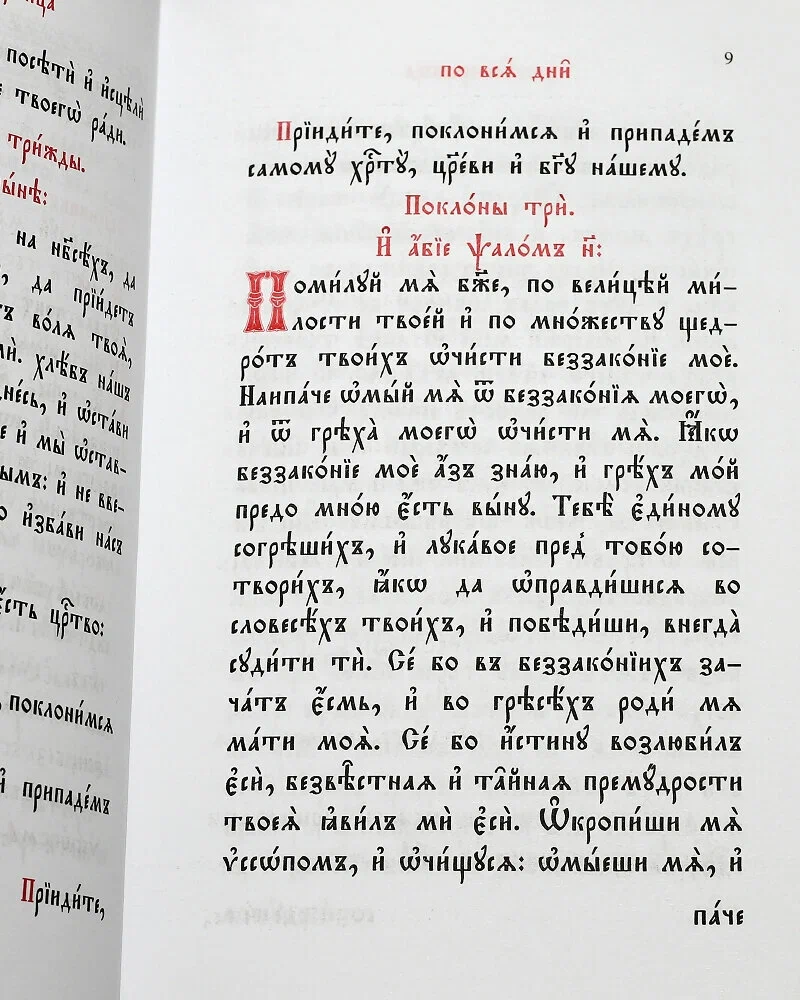 посѣти́ и҆ и҆сцѣлѝ
твоегѡ̀ ра́ди.
три́жды.
на нб҃сѣ́хъ, да
да прїи́детъ
во́лѧ твоѧ̀,
хлѣ́бъ на́шъ
и҆ ѡ҆ста́ви
и҆ мы̀ ѡ҆ставлѧ-
ымъ: и҆ не вве-
и҆зба́ви на́съ
црⷭ҇тво:
поклони́мсѧ
и҆ припаде́мъ
Прїиди́те,
9
по всѧ̑ дни̑
Прїиди́те, поклони́мсѧ и҆ припаде́мъ
самомꙋ̀ хрⷭ҇тꙋ̀, цр҃е́ви и҆ бг҃ꙋ на́шемꙋ.
Покло́ны трѝ.
И҆ а҆́бїе ѱало́мъ н҃:
Поми́лꙋй мѧ̀ бж҃е, по вели́цѣй ми́-
лости твое́й и҆ по мно́жествꙋ щед-
ро́тъ твои́хъ ѡ҆чи́сти беззако́нїе моѐ.
Наипа́че ѡ҆мы́й мѧ̀ ѿ беззако́нїѧ моегѡ̀,
и҆ ѿ грѣха̀ моегѡ̀ ѡ҆чи́сти мѧ̀. Ꙗ҆́кѡ
беззако́нїе моѐ а҆́зъ зна́ю, и҆ грѣ́хъ мо́й
предо мно́ю є҆́сть вы́нꙋ. Тебѣ̀ є҆ди́номꙋ
согрѣши́хъ, и҆ лꙋка́вое пред̾ тобо́ю со-
твори́хъ, ꙗ҆́кѡ да ѡ҆правди́шисѧ во
словесѣ́хъ твои́хъ, и҆ побѣди́ши, внегда̀
сꙋди́ти тѝ. Се́ бо въ беззако́нїихъ за-
ча́тъ є҆́смь, и҆ во грѣсѣ́хъ родѝ мѧ
ма́ти моѧ̀. Се́ бо и҆́стинꙋ возлюби́лъ
є҆сѝ, безвѣ́стнаѧ и҆ та̑йнаѧ премꙋ́дрости
твоеѧ̀ ꙗ҆ви́лъ мѝ є҆сѝ. Ѡ҆кропи́ши мѧ̀
ѵ҆ссѡ́помъ, и҆ ѡ҆чи́щꙋсѧ: ѡ҆мы́еши мѧ̀, и҆
па́че